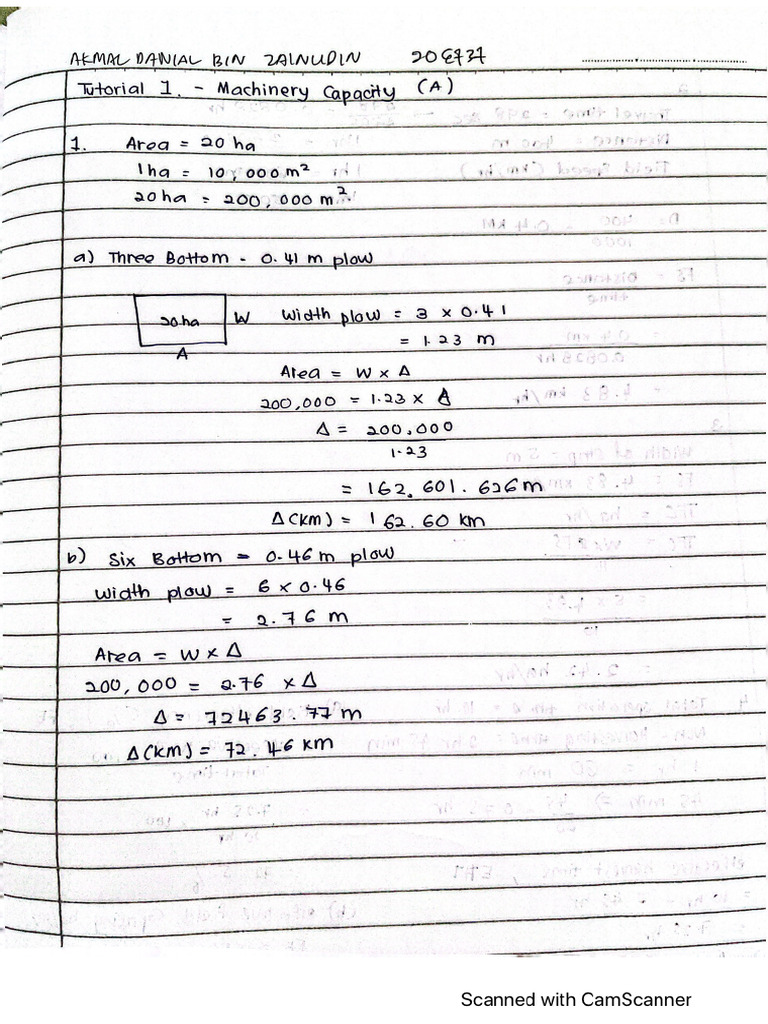 AKMAL DANIAL BIN ZAINUDIN
Tutorial 1. - Machinery Capacity (A)
1. Area = 20 ha
1 ha = 10,000 m²
20 ha = 200,000 m²
a) Three Bottom - 0.41 m plow
20ha W Width plow = 3 x 0.41
= 1.23 m
Δ
Area = W x Δ
200,000 = 1.23 x Δ
Δ = 200,000
1.23
= 162,601.626 m
Δ(km) = 162.60 km
b) Six Bottom - 0.46 m plow
Width plow = 6 x 0.46
= 2.76 m
Area = W x Δ
200,000 = 2.76 x Δ
Δ = 72463.77 m
Δ(km) = 72.46 km
Scanned with CamScanner